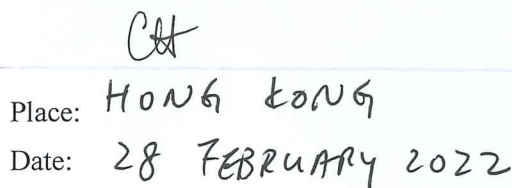 Place: HONG KONG
Date: 28 FEBRUARY 2022